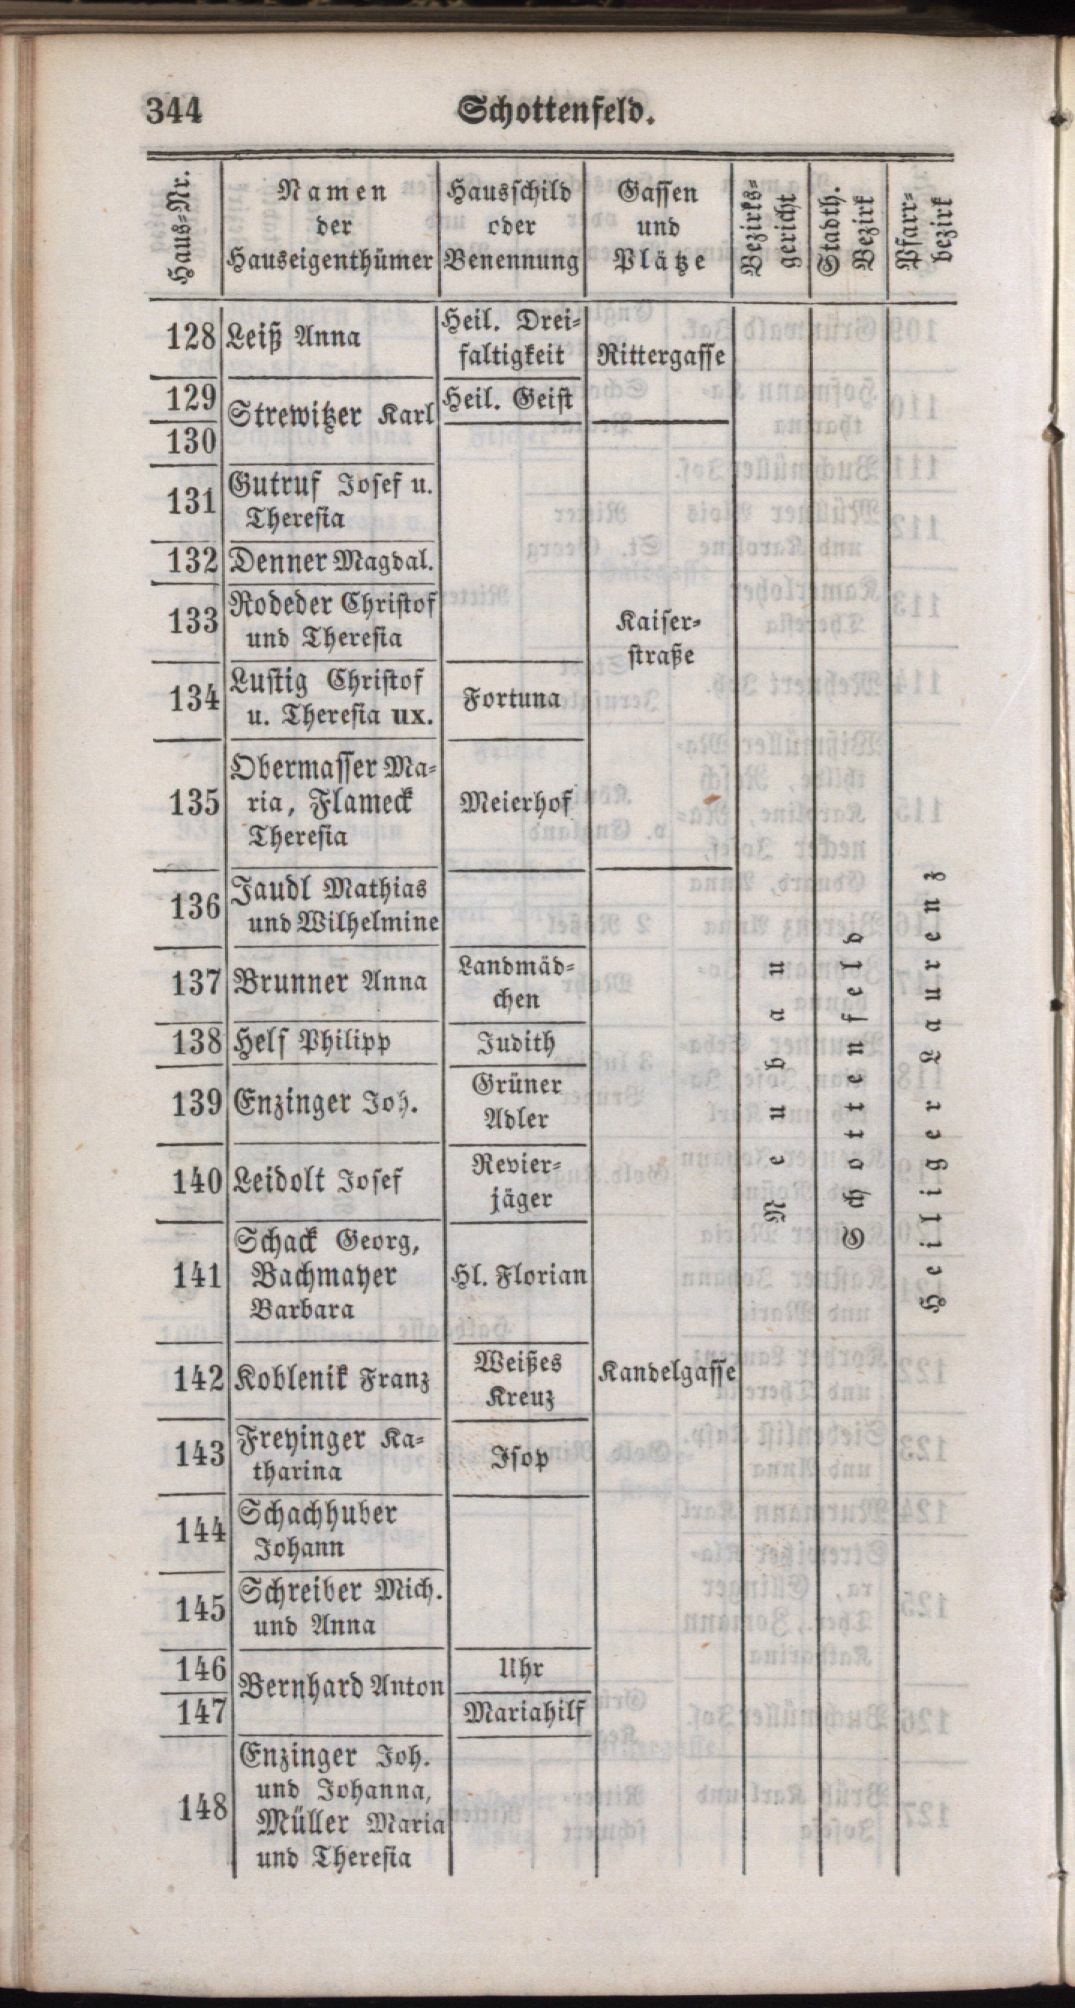 344 Schottenfeld.
Haus=Nr.
Namen
der
Hauseigenthümer
Hausschild
oder
Benennung
Gassen
und
Plätze
Bezirks=
gericht
Stadth.
Bezirk
Pfarr=
bezirk
128 Leiß Anna Heil. Drei=
faltigkeit Rittergasse
129 Strewitzer Karl Heil. Geist
130
131 Gutruf Josef u.
Theresia
132 Denner Magdal.
133 Rodeder Christof
und Theresia
Kaiser=
straße
134 Lustig Christof
u. Theresia ux. Fortuna
135 Obermasser Ma=
ria, Flameck Meierhof
Theresia
136 Jaudl Mathias
und Wilhelmine
137 Brunner Anna Landmäd=
chen
138 Helf Philipp Judith
139 Enzinger Joh. Grüner
Adler
140 Leidolt Josef Revier=
jäger
141 Schack Georg,
Bachmayer Hl. Florian
Barbara
142 Koblenik Franz Weißes
Kreuz Kandelgasse
143 Freyinger Ka=
tharina Isop
144 Schachhuber
Johann
145 Schreiber Mich.
und Anna
146 Bernhard Anton Uhr
147 Mariahilf
148 Enzinger Joh.
und Johanna,
Müller Maria
und Theresia
Neubau
Schottenfeld
Heiliger Laurenz